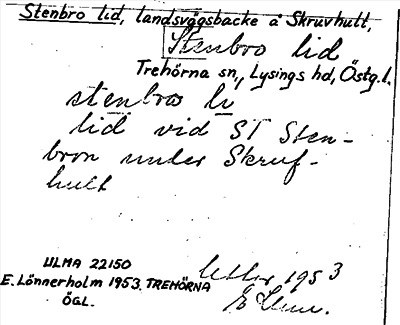 Stenbro lid, landsvägsbacke å Skruvhult,
Stenbro lid
Trehörna sn, Lysings hd, Östg.l.
stenbro li
lid vid ST Sten-
bron under Skruf-
hult
ULMA 22150
E. Lönnerholm 1953. TREHÖRNA
ÖGL.
1953